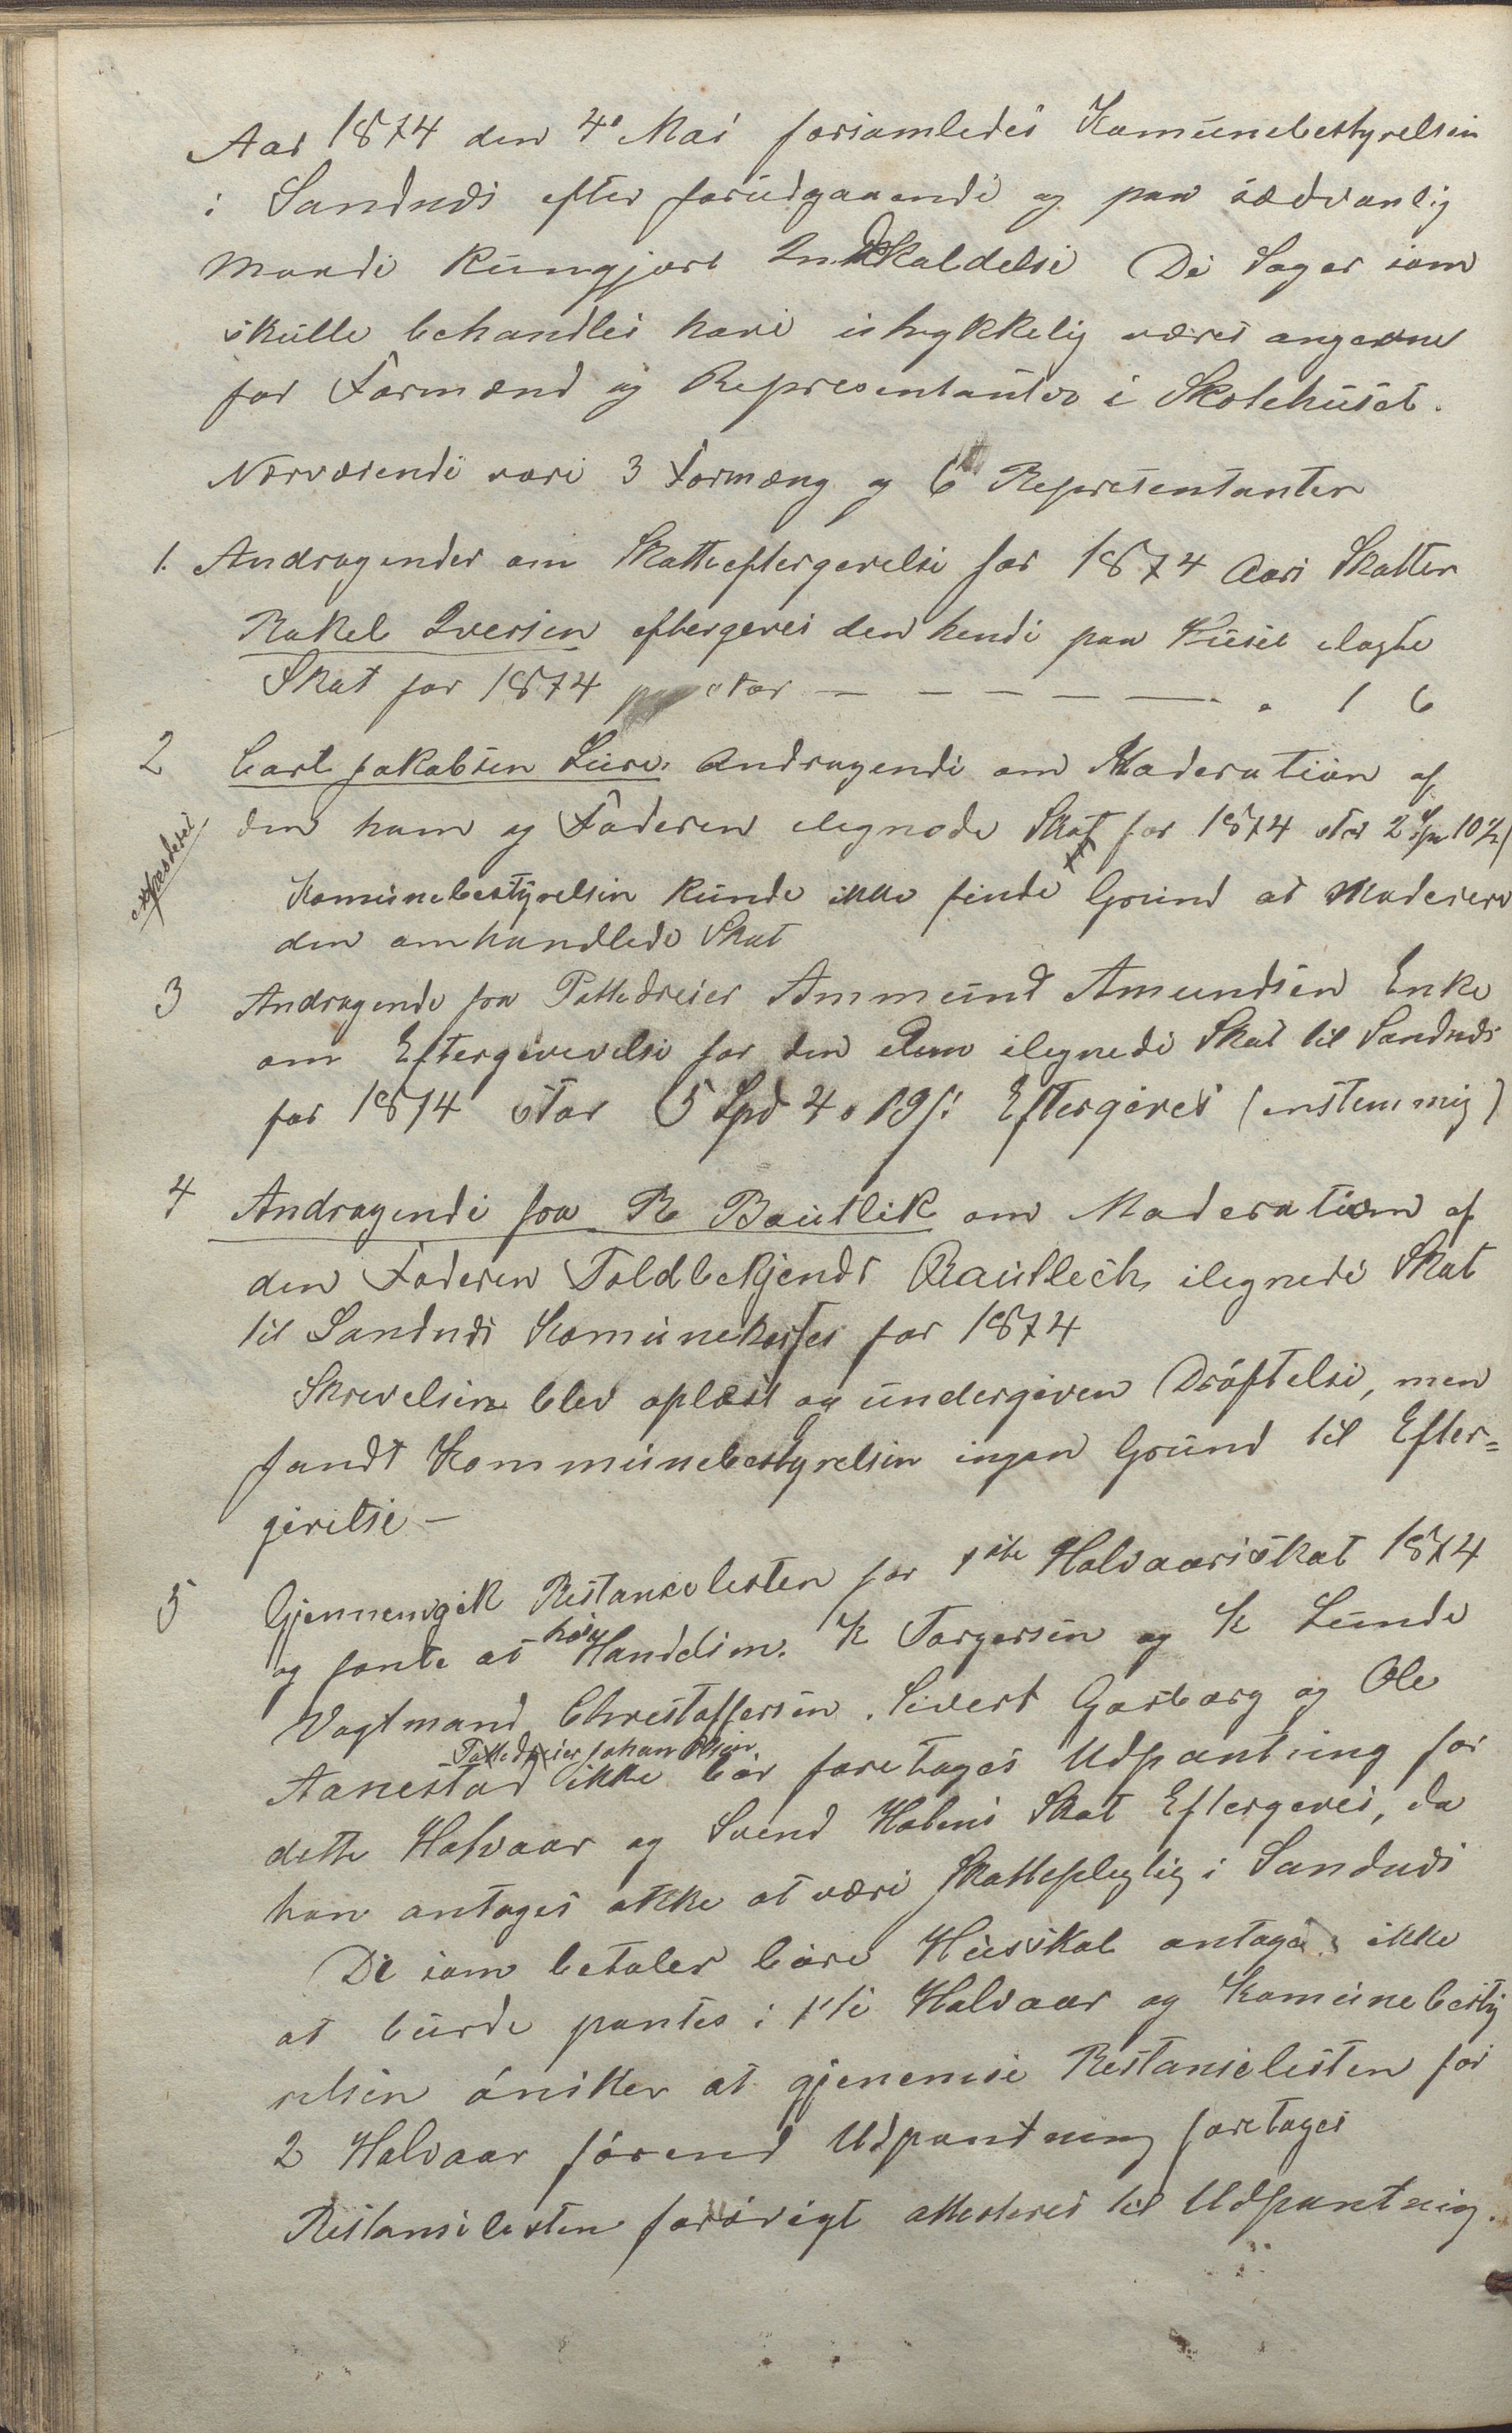 Aar 1874 den 4de Mai forsamledes Komúnebestyrelsen
i Sandnæs efter forúdgaaende og paa sædvanlig
Maade kúngjort Indkaldelse De Sager som
skúlle behandles have ístykkelig været angevne
for Formænd og Representanter i Skolehúset.
Nærværende vare 3 Formæng og 6 Representanter
1. Andragender om Skatteeftergivelse for 1874 Aars Skatter
Rakel Iversen eftergives den hende paa Húset ilagte
Skat for 1874 stor — — — — — 1 6
2 Carl Jakobsen Lúra, Andragende om Moderation af
den ham og Faderen ilegnede Skat for 1874 stor 2 Spd 10 s/
Komúnebestyrelsen kúnde ikke finde Grúnd at Moderere
den omhandlede Skat
3 Andragende fra Pottedreier Ammúnd Amundsen Enke
om Eftergivevelse for den dem ilegnede Skat til Sandnæs
for 1874 stor 5 Spd 4 o 19 s: Eftergives (enstemmig)
4 Andragende fra R Baútlik om Moderation af
den Faderen Toldbetjendt Raútlech ilegnede Skat
til Sandnæs Komúnekasse for 1874
Skrivelsen blev oplæst og úndergiven Dröftelse, men
fandt Kommúnebestyrelsen ingen Grúnd til Efter=
givelse —
5 Gjennemgik Restancelisten for 1ste Halvaarsskat 1874
og fante at hos Handelsm. K Torgersen og K Lúnde
Vagtmand Christoffersen, Sivert Garborg og Ole
Aanestad Pottedreier Johan Olsen ikke bör foretages Udpantning for
dette Halvaar og Svend Holens Skat Eftergives, da
han antages ikke at være Skattepligtig i Sandnæs
De som betaler bare Hússkat antages ikke
at búrde pantes i 1ste Halvaar og Komúnebesty
relsen önsker at gjenemse Restanselisten for
2 Halvaar förend Udpantning foretages
Restanselisten forövrigt attesteres til Udpantning.